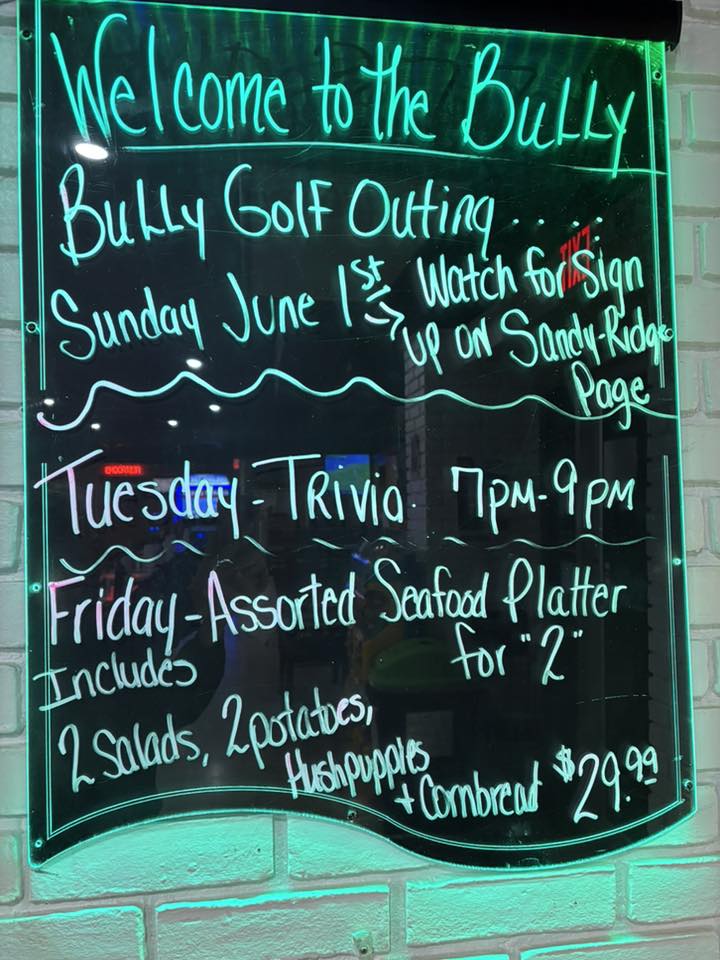 Welcome to the Bully
Bully Golf Outing.....
Sunday June 1st → Watch for Sign
up on Sandy-Ridge
Page
EXIT
Tuesday - Trivia 7pm-9pm
Friday - Assorted Seafood Platter
for "2"
Includes
2 Salads, 2 potatoes,
Hushpuppies
+ Cornbread $29.99